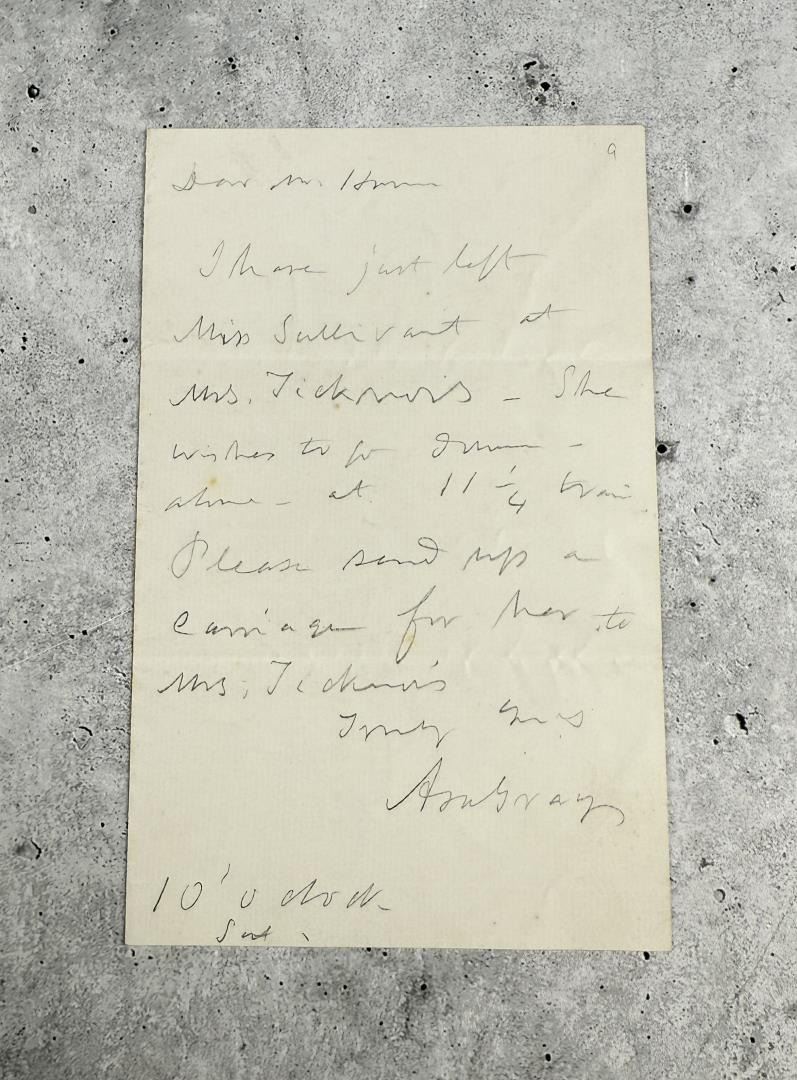 9
Dear Mr.
I have just left
Miss Sullivant at
Mrs. Ticknor's - She
wishes to go down -
alone - at 11 1/4 train.
Please send up a
carriage for her to
Mrs. Ticknor's
Truly Yrs
Asa Gray
10 o'clock
Sat.